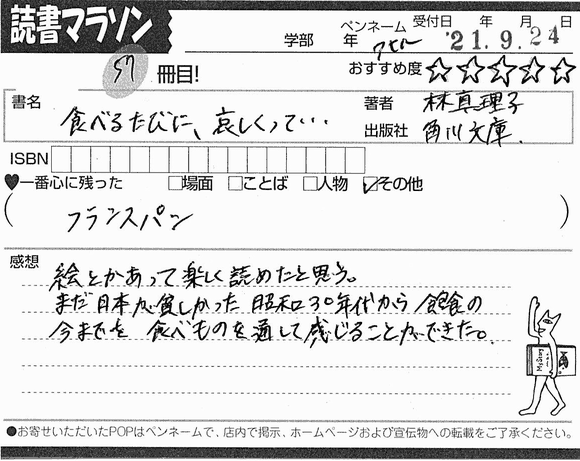 読書マラソン
学部 年 ペンネーム アヒル 受付日 年 月 日
'21.9.24
57 冊目!
おすすめ度 ☆☆☆☆☆
書名 食べるたびに、哀しくって…
著者 林真理子
出版社 角川文庫.
ISBN
♥一番心に残った □場面 □ことば □人物 ☑その他
( フランスパン )
感想
絵とかあって楽しく読めたと思う。
まだ日本が貧しかった昭和30年代から飽食の
今までを食べものを通して感じることができた。
●お寄せいただいたPOPはペンネームで、店内で掲示、ホームページおよび宣伝物への転載をご了承ください。